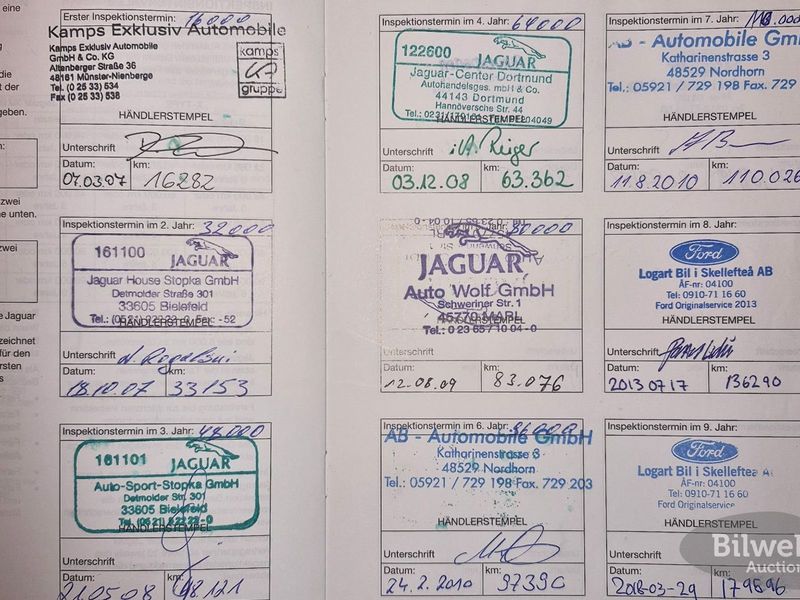 eine
die
t der
geben.
n:
e unten.
zwei
e Jaguar
zeichnet
für den
ersten
s
Erster Inspektionstermin: 16000
Kamps Exklusiv Automobile
Kamps Exklusiv Automobile
GmbH & Co. KG
Altenberger Straße 36
48161 Münster-Nienberge
Tel. (0 25 33) 534
Fax (0 25 33) 538
kamps
gruppe
HÄNDLERSTEMPEL
Unterschrift
Datum: km:
07.03.07 16282
Inspektionstermin im 2. Jahr: 32000
161100 JAGUAR
Jaguar House Stopka GmbH
Detmolder Straße 301
33605 Bielefeld
HÄNDLERSTEMPEL
Unterschrift
Datum: km:
18.10.07 33153
Inspektionstermin im 3. Jahr: 48000
161101 JAGUAR
Auto-Sport-Stopka GmbH
Detmolder Str. 301
33605 Bielefeld
HÄNDLERSTEMPEL
Unterschrift
Datum: km:
21.05.08 48.121
Inspektionstermin im 4. Jahr: 64000
122600 JAGUAR
Jaguar-Center Dortmund
Autohandelsges. mbH & Co.
44143 Dortmund
Hannöversche Str. 44
HÄNDLERSTEMPEL
Unterschrift i.A. Rüger
Datum: km:
03.12.08 63.362
80000
JAGUAR
Auto Wolf GmbH
Schweriner Str. 1
45770 MARL
HÄNDLERSTEMPEL
Tel.: 0 23 65 / 10 04 - 0
Unterschrift
Datum: km:
12.08.09 83.076
Inspektionstermin im 6. Jahr: 96000
AB - Automobile GmbH
Katharinenstrasse 3
48529 Nordhorn
Tel.: 05921 / 729 198 Fax. 729 203
HÄNDLERSTEMPEL
Unterschrift
Datum: km:
24.2.2010 97390
Inspektionstermin im 7. Jahr:
AB - Automobile Gm
Katharinenstrasse 3
48529 Nordhorn
Tel.: 05921 / 729 198 Fax. 729
HÄNDLERSTEMPEL
Unterschrift
Datum: km:
11.8.2010 110.026
Inspektionstermin im 8. Jahr:
Ford
Logart Bil i Skellefteå AB
ÅF-nr: 04100
Tel: 0910-71 16 60
Ford Originalservice 2013
HÄNDLERSTEMPEL
Unterschrift
Datum: km:
2013 07 17 136290
Inspektionstermin im 9. Jahr:
Ford
Logart Bil i Skellefteå A
ÅF-nr: 04100
Tel: 0910-71 16 60
Ford Originalservice
HÄNDLERSTEMPEL
Unterschrift
Datum: km:
2018-03-29 179896
Bilwe
Auction